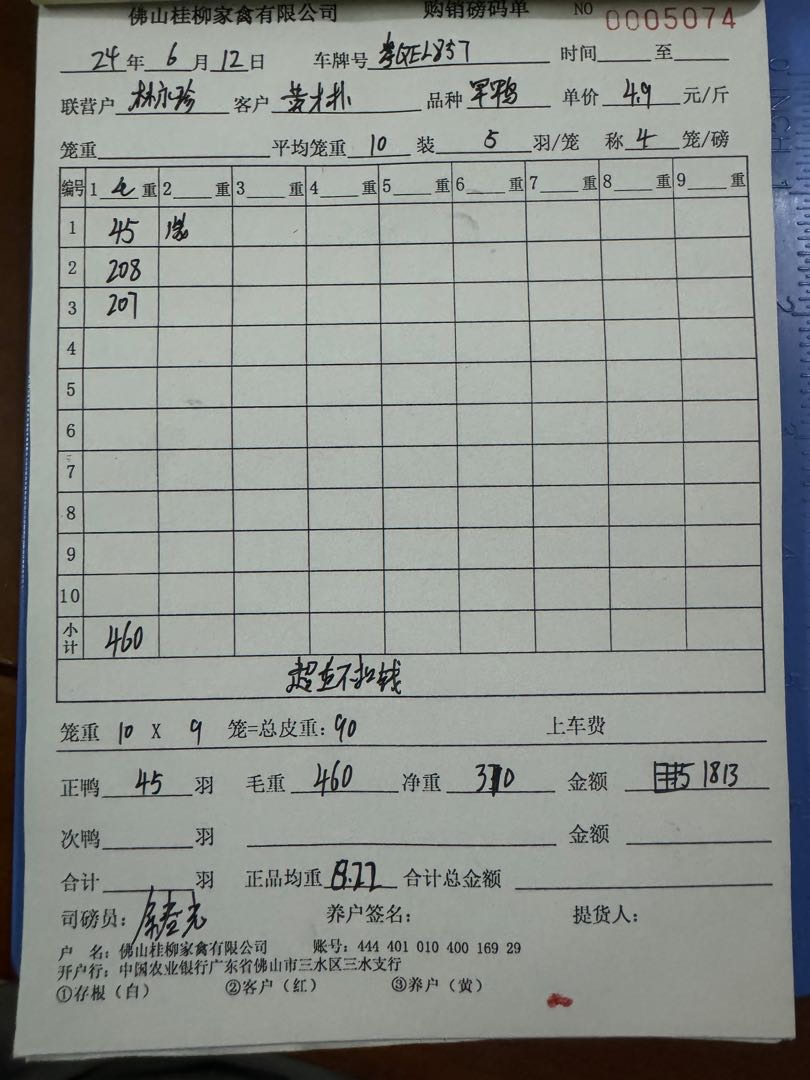 佛山桂柳家禽有限公司 购销磅码单 NO 0005074
24年6月12日 车牌号粤QEL857 时间 至
联营户林永珍 客户黄才朴 品种罗鸭 单价4.9元/斤
笼重 平均笼重10 装5羽/笼 称4笼/磅
编号 1毛重 2 重 3 重 4 重 5 重 6 重 7 重 8 重 9 重
1 45
2 208
3 207
4
5
6
7
8
9
10
小计 460
超重不扣钱
笼重 10 X 9 笼=总皮重:90 上车费
正鸭45羽 毛重460 净重370 金额1813
次鸭 羽 金额
合计 羽 正品均重8.22 合计总金额
司磅员: 养户签名: 提货人:
户 名:佛山桂柳家禽有限公司 账号:444 401 010 400 169 29
开户行:中国农业银行广东省佛山市三水区三水支行
①存根(白) ②客户(红) ③养户(黄)